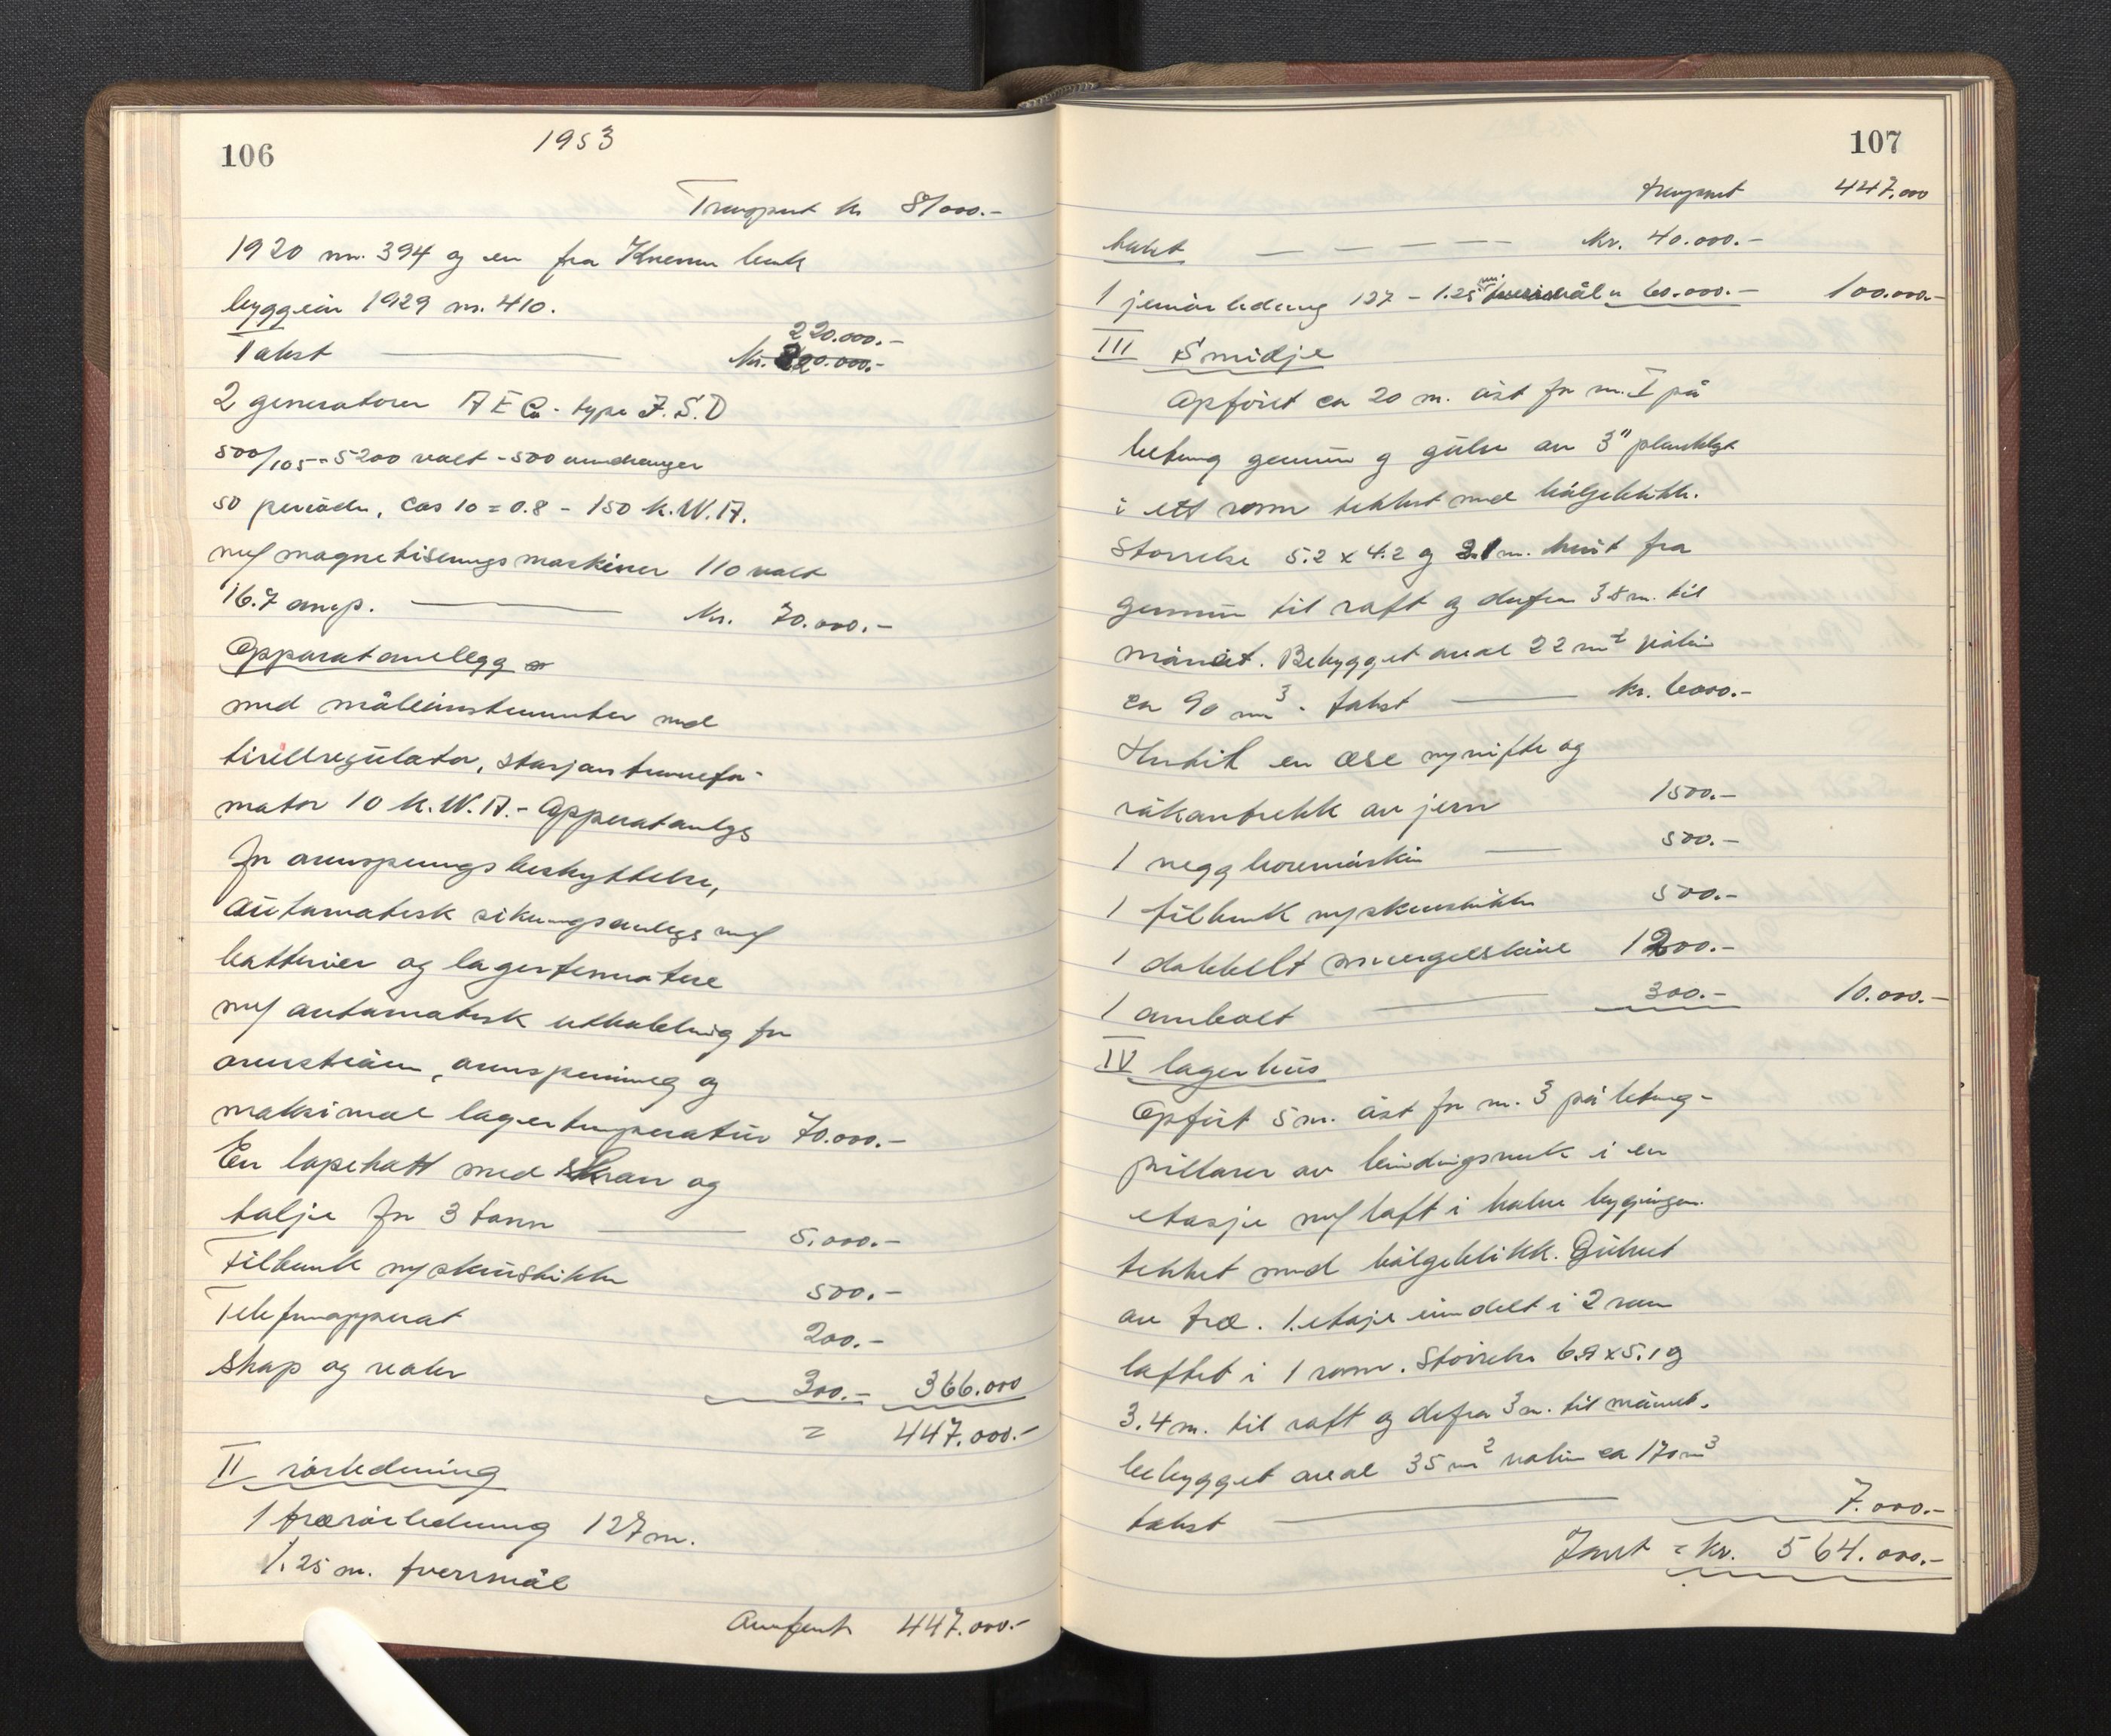 106
1953
Transport kr 81000.-
1920 nr. 394 og en fra Kværner bruk
byggeår 1929 nr. 410.
220.000.-
Takst Kr. 220.000.-
2 generatorer A E Co - type F.S.D
500/105 - 5200 volt - 500 omdreininger
50 perioder, Cos 10 = 0.8 - 150 K.W.A.
m/ magnetiseringsmaskiner 110 volt
16.7 amp. Kr. 70.000.-
Apparatanlegg
med måleinstrumenter med
tirillregulator, stasjonstransfor-
mator 10 K.W.A. - Apparatanlegg
for overspennings beskyttelse,
automatisk sikringsanlegg m/
batterier og lagertermostere
m/ automatisk utkobling for
overstrøm, overspenning og
maksimal lagertemperatur 70.000.-
En løpekatt med kran og
talje for 3 tonn 5.000.-
Filbenk m/ skrustikke 500.-
Telefonapparat 200.-
Skap og reoler 300.- 366.000
= 447.000.-
II rørledning
1 trærørledning 127 m.
1.25 m. tverrmål
Overført 447.000.-
107
transport 447.000
takst — — — — Kr. 40.000.-
1 jernrørledning 127 - 1.25 m tverrmål " 60.000.- 100.000.-
III Smidje
Opført ca 20 m. øst for nr. I på
betong grunnmur og gulv av 3" plankebygg
i ett rom tekket med bølgeblikk.
Størrelse 5.2 x 4.2 og 2.1 m. høit fra
grunnmur til raft og derfra 3.8 m. til
mønet. Bebygget areal 22 m² volum
ca 90 m³. takst kr. 6000.-
Hertil en esse m/ vifte og
røkavtrekk av jern 1500.-
1 vegg boremaskin 500.-
1 filbenk m/ skrustikke 500.-
1 dobbelt smergelskive 1200.-
1 ambolt 300.- 10.000.-
IV lagerhus
Opført 5 m. øst for nr. 3 på betong-
pillarer av bindingsverk i en
etasje m/ loft i halve bygningen.
tekket med bølgeblikk. Gulvet
av træ. 1. etasje inndelt i 2 rom
loftet i 1 rom. Størrelse 6.9 x 5.1 og
3.4 m. til raft og derfra 3 m. til mønet.
bebygget areal 35 m² volum ca 170 m³
takst 7.000.-
Tomt = kr. 564.000.-